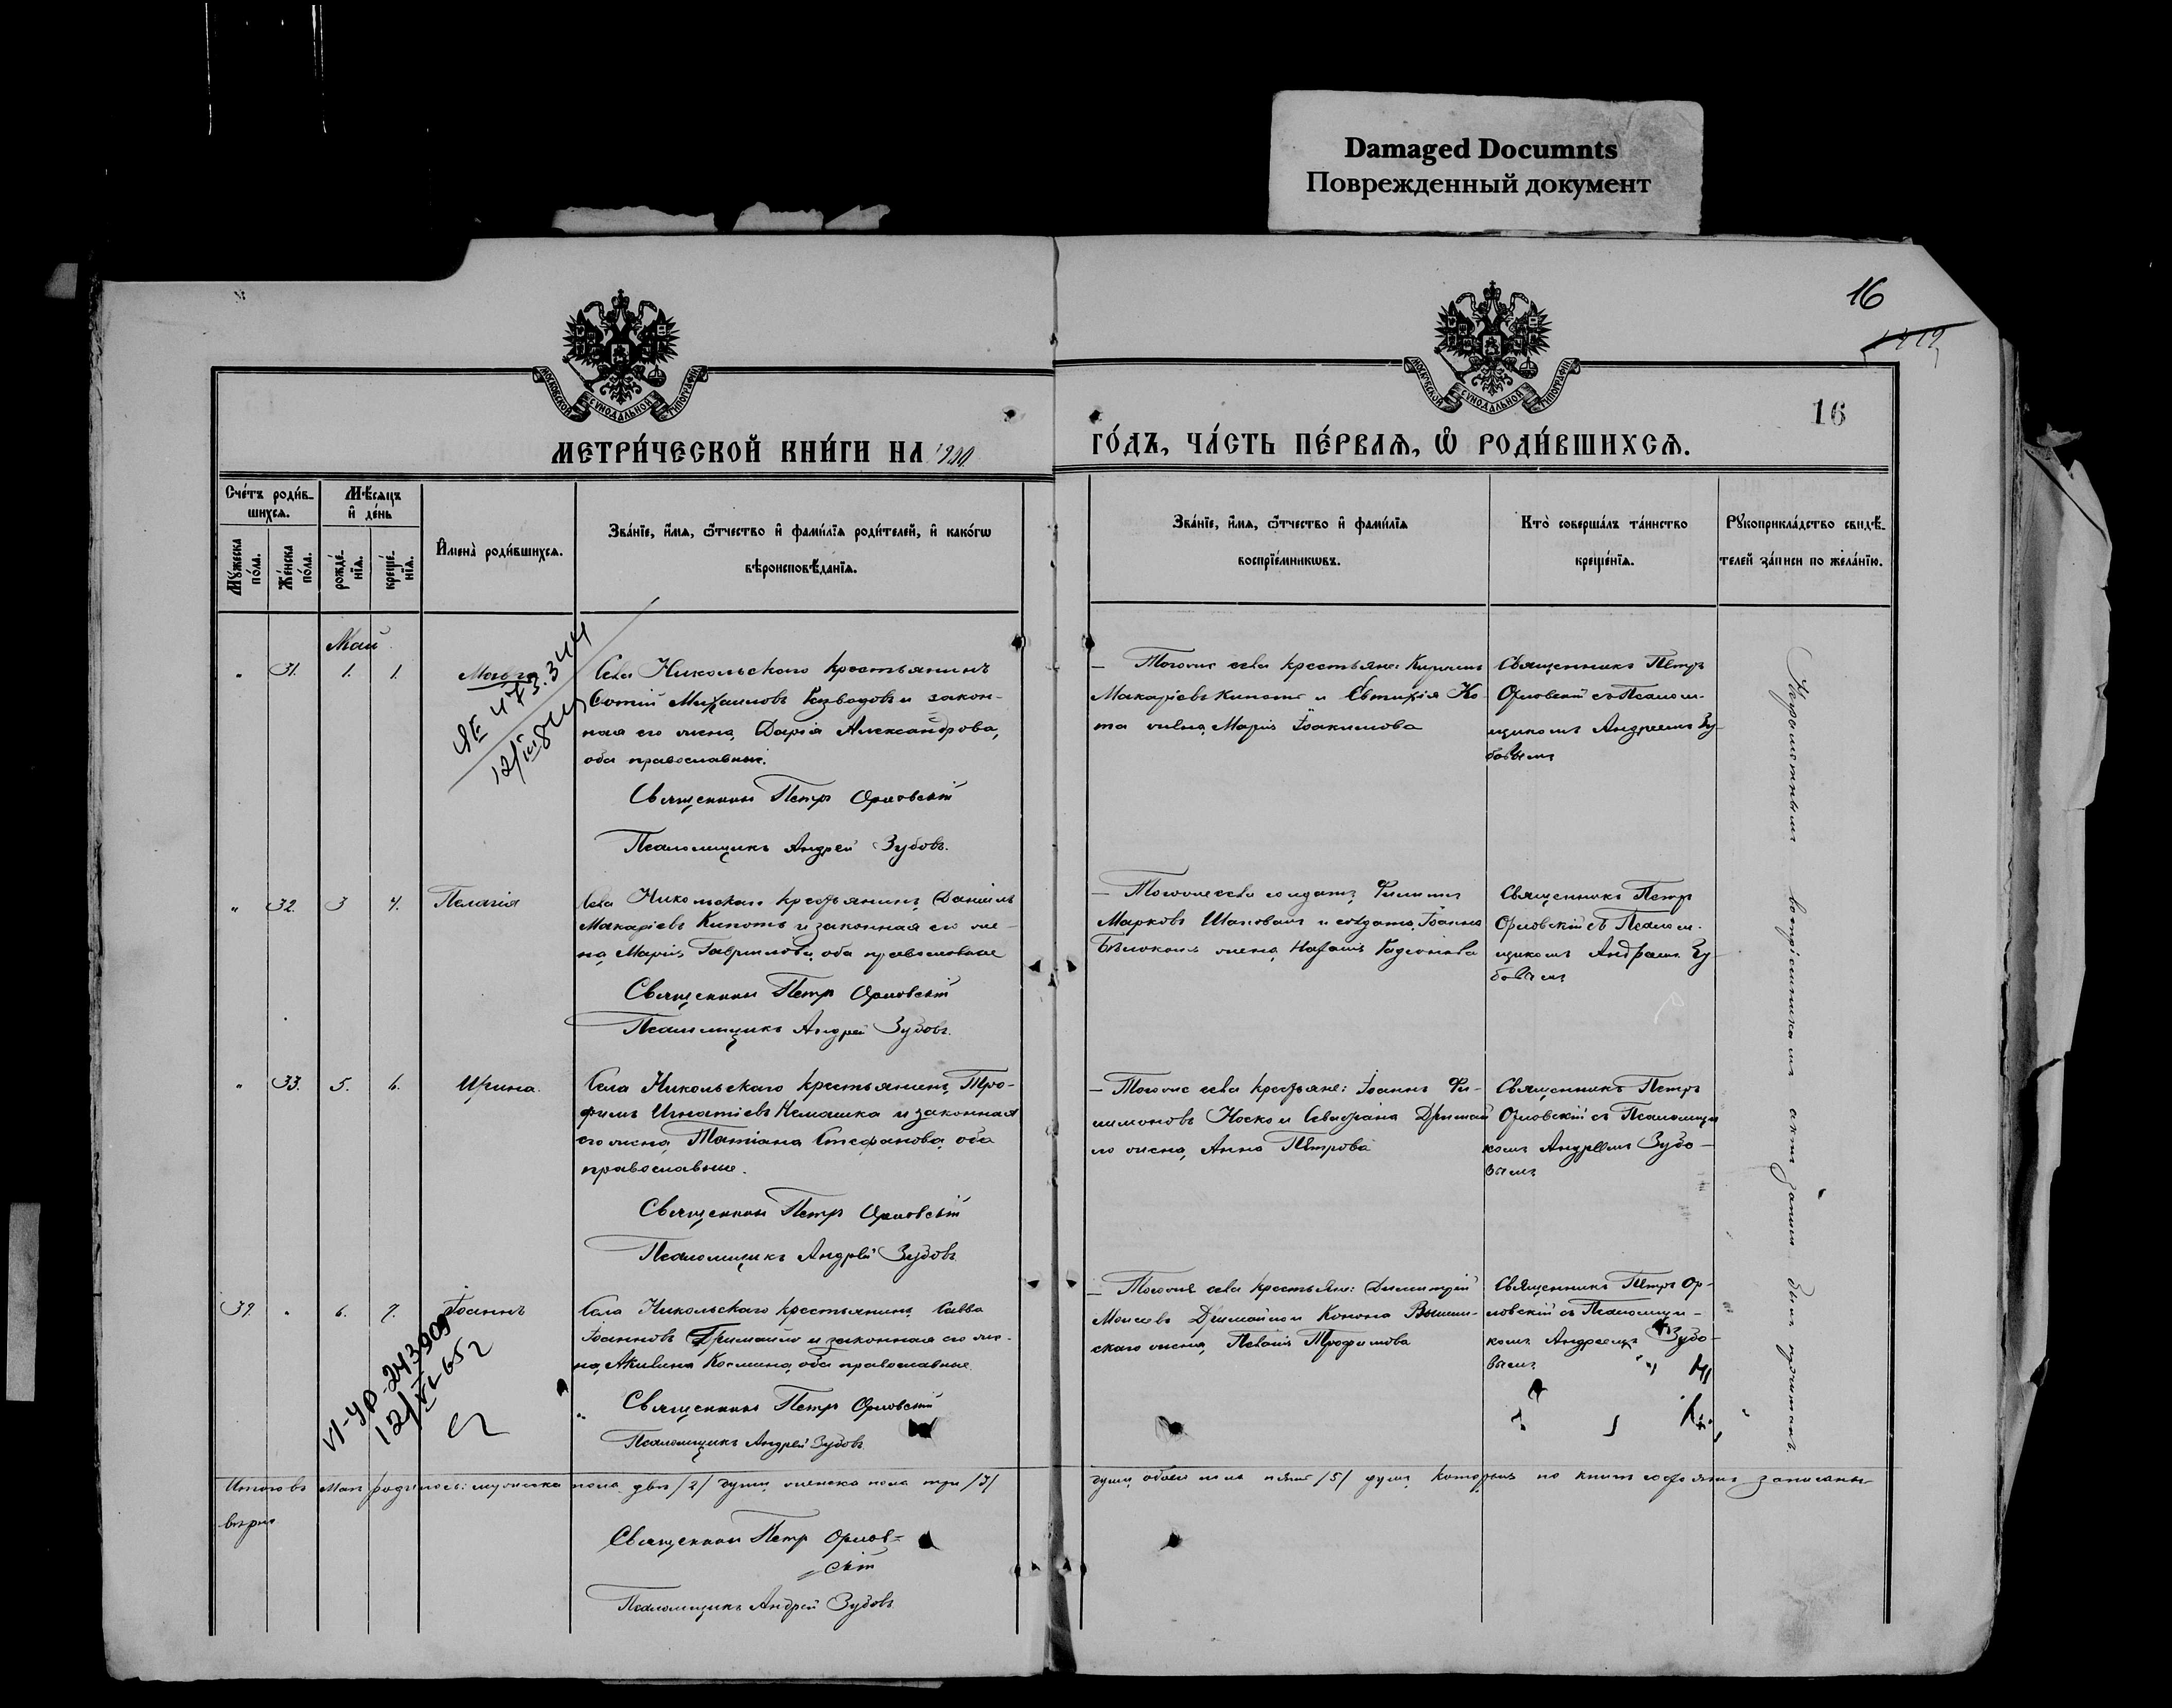 Damaged Documnts
Поврежденный документ
16
16
МОСКОВСКОЙ СѴНОДАЛЬНОЙ ТИПОГРАФІИ
МОСКОВСКОЙ СѴНОДАЛЬНОЙ ТИПОГРАФІИ
МЕТРИ́ЧЕСКОЙ КНИ́ГИ НА
ГО́ДЪ, ЧА́СТЬ ПЕ́РВАѦ, Ѡ҆ РОДИ́ВШИХСѦ.
Сче́тъ роди́в-
шихсѧ.
Мѣ́сѧцъ
и҆ де́нь
Мꙋ́жеска по́ла.
Же́нска по́ла.
рожде́-
нїѧ.
креще́-
нїѧ.
И҆мена̀ роди́вшихсѧ.
Зва́нїе, и҆́мѧ, ѻ҆́тчество и҆ фами́лїѧ роди́телей, и҆ како́гѡ
вѣроисповѣ́данїѧ.
Зва́нїе, и҆́мѧ, ѻ҆́тчество и҆ фами́лїѧ
воспрїе́мникѡвъ.
Кто̀ соверша́лъ та́инство
креще́нїѧ.
Рꙋкоприкла́дство свидѣ́-
телей за́писи по жела́нїю.
Май
" 31. 1. 1. Мавра
Села Никольскаго крестьянинъ
Фотій Михаиловъ и закон-
ная его жена Дарія Александрова,
оба православные.
Священникъ Петръ Орловскій
Псаломщикъ Андрей Зубовъ.
— Тогоже села крестьяне: Кириллъ
Макаріевъ Кипоть и Евтихія Ко-
та жена Марія Іоакимова
Священникъ Петръ
Орловскій съ Псалом-
щикомъ Андреемъ Зу-
бовымъ
" 32. 3 4. Пелагія
Села Никольскаго крестьянинъ Даніилъ
Макаріевъ Кипоть и законная его же-
на Марія Гаврилова, оба православные
Священникъ Петръ Орловскій
Псаломщикъ Андрей Зубовъ.
— Тогоже села солдатъ Филиппъ
Марковъ Шаповалъ и солдата Іоанна
Бѣлоконь жена Наталія
Священникъ Петръ
Орловскій съ Псалом-
щикомъ Андреемъ Зу-
бовымъ
" 33. 5. 6. Ирина.
Села Никольскаго крестьянинъ Тро-
фимъ Игнатіевъ Немашка и законная
его жена Татіана Стефанова, оба
православные.
Священникъ Петръ Орловскій
Псаломщикъ Андрей Зубовъ
— Тогоже села крестьяне: Іоаннъ Фи-
лимоновъ Носко и Севастіана Дримай
ло жена Анна Петрова
Священникъ Петръ
Орловскій съ Псаломщи
комъ Андреемъ Зубо-
вымъ
39. " 6. 7. Іоаннъ
Села Никольскаго крестьянинъ Савва
Іоанновъ Дримайло и законная его же-
на Акилина Космина, оба православные
Священникъ Петръ Орловскій
Псаломщикъ Андрей Зубовъ
— Тогоже села крестьяне: Димитрій
Моисеевъ Дримайло и Конона Вышин-
скаго жена Пелагія Трофимова
Священникъ Петръ Ор-
ловскій съ Псаломщи-
комъ Андреемъ Зубо-
вымъ
Неграмотнымъ воспріемникамъ актъ записи былъ прочитанъ.
Итого въ Маѣ родилось: мужеска пола двѣ /2/ души, женска пола три /3/
души, обоего пола пять /5/ душъ, которые по книгѣ сей записаны
вѣрно
Священникъ Петръ Орлов-
скій
Псаломщикъ Андрей Зубовъ